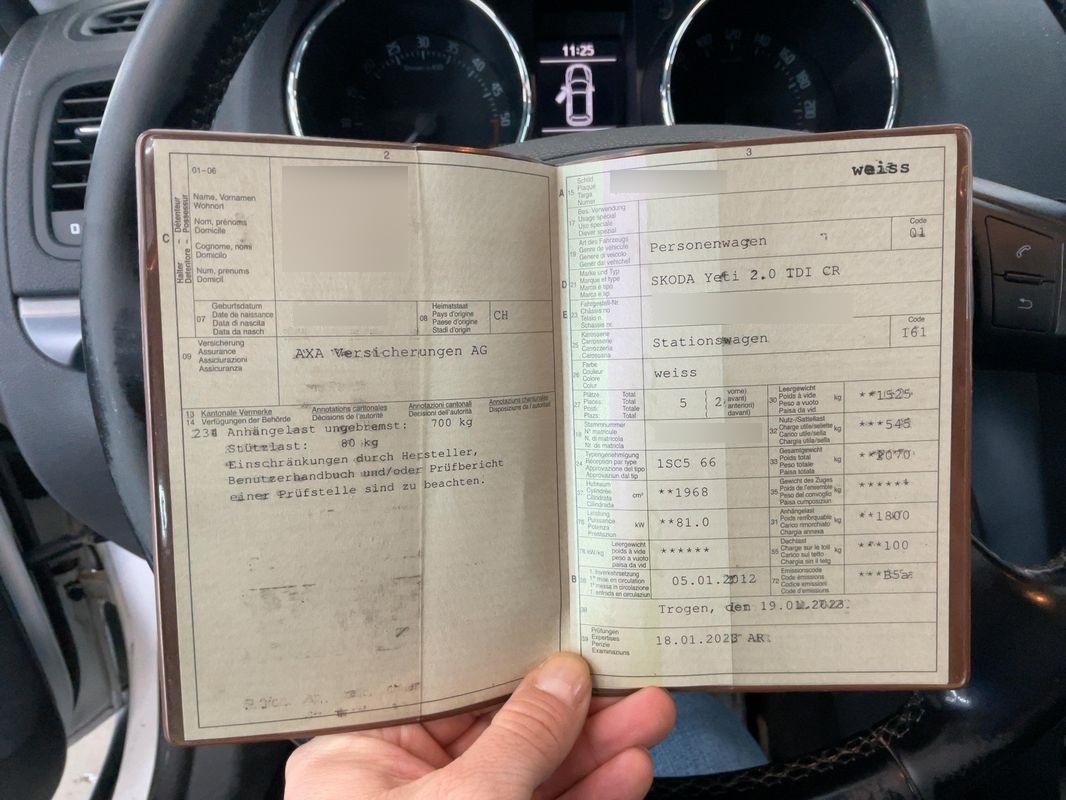 11:25
2
01-06
Halter – Détenteur
Detentore – Possessur
C
Name, Vornamen
Wohnort
Nom, prénoms
Domicile
Cognome, nomi
Domicilio
Num, prenums
Domicil
07
Geburtsdatum
Date de naissance
Data di nascita
Data da nasch
08
Heimatstaat
Pays d'origine
Paese d'origine
Stadi d'origin
CH
09
Versicherung
Assurance
Assicurazioni
Assicuranza
AXA Versicherungen AG
13
14
Kantonale Vermerke
Verfügungen der Behörde
Annotations cantonales
Décisions de l'autorité
Annotazioni cantonali
Decisioni dell'autorità
Annotaziuns chantunalas
Disposiziuns da l'autoritad
231 Anhängelast ungebremst: 700 kg
Stützlast: 80 kg
Einschränkungen durch Hersteller,
Benutzerhandbuch und/oder Prüfbericht
einer Prüfstelle sind zu beachten.
3
weiss
A
15
Schild
Plaque
Targa
Numer
17
Bes. Verwendung
Usage spécial
Uso speciale
Diever spezial
19
Art des Fahrzeugs
Genre de véhicule
Genere di veicolo
Gener dal vehichel
Personenwagen
Code
01
D
21
Marke und Typ
Marque et type
Marca e tipo
Marca e tip
SKODA Yeti 2.0 TDI CR
E
23
Fahrgestell-Nr.
Châssis no
Telaio n.
Schassis nr.
25
Karosserie
Carrosserie
Carrozzeria
Carossaria
Stationswagen
Code
161
26
Farbe
Couleur
Colore
Colur
weiss
27
Plätze: Total
Places: Total
Posti: Totale
Plazs: Total
5
2
vorne)
avant)
anteriori)
davant)
30
Leergewicht
Poids à vide
Peso a vuoto
Paisa da vid
kg
**1525
18
Stammnummer
N° matricule
N. di matricola
Nr. da matricla
32
Nutz-/Sattellast
Charge utile/sellette
Carico utile/sella
Chargia utila/sella
kg
***545
24
Typengenehmigung
Réception par type
Approvazione del tipo
Approvaziun dal tip
1SC5 66
33
Gesamtgewicht
Poids total
Peso totale
Paisa totala
kg
**2070
37
Hubraum
Cylindrée
Cilindrata
Cilindrada
cm³
**1968
35
Gewicht des Zuges
Poids de l'ensemble
Peso del convoglio
Paisa cumposiziun
kg
******
76
Leistung
Puissance
Potenza
Prestaziun
kW
**81.0
31
Anhängelast
Poids remorquable
Carico rimorchiato
Chargia annexa
kg
**1800
78 kW/kg
Leergewicht
poids à vide
peso a vuoto
paisa da vid
******
55
Dachlast
Charge sur le toit
Carico sul tetto
Chargia sin il tetg
kg
***100
B
36
1. Inverkehrsetzung
1re mise en circulation
1a messa in circolazione
1. entrada en circulaziun
05.01.2012
72
Emissionscode
Code émissions
Codice emissioni
Code d'emissiuns
***B5a
38
Trogen, den 19.01.2023.
39
Prüfungen
Expertises
Perizie
Examinaziuns
18.01.2023 AR